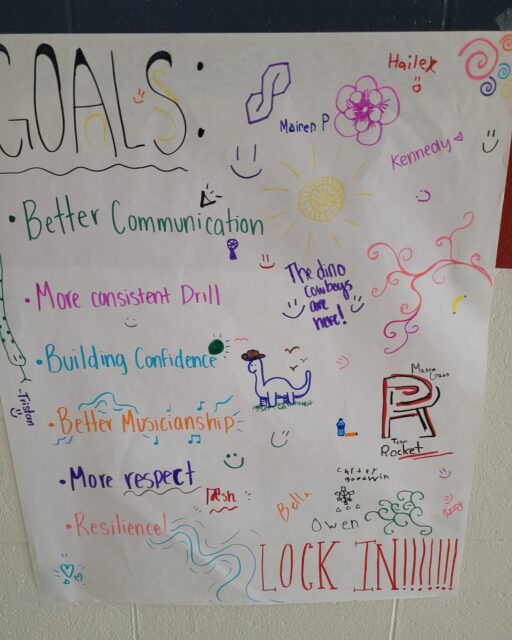 GOALS:
Hailey
Mairen P
Kennedy
• Better Communication
The dino
cowboys
are
here!
• More consistent Drill
• Building Confidence
Tristan
• Better Musicianship
Team
Rocket
• More respect
carter
goodwin
Bella
Owen
• Resilience!
LOCK IN!!!!!!!